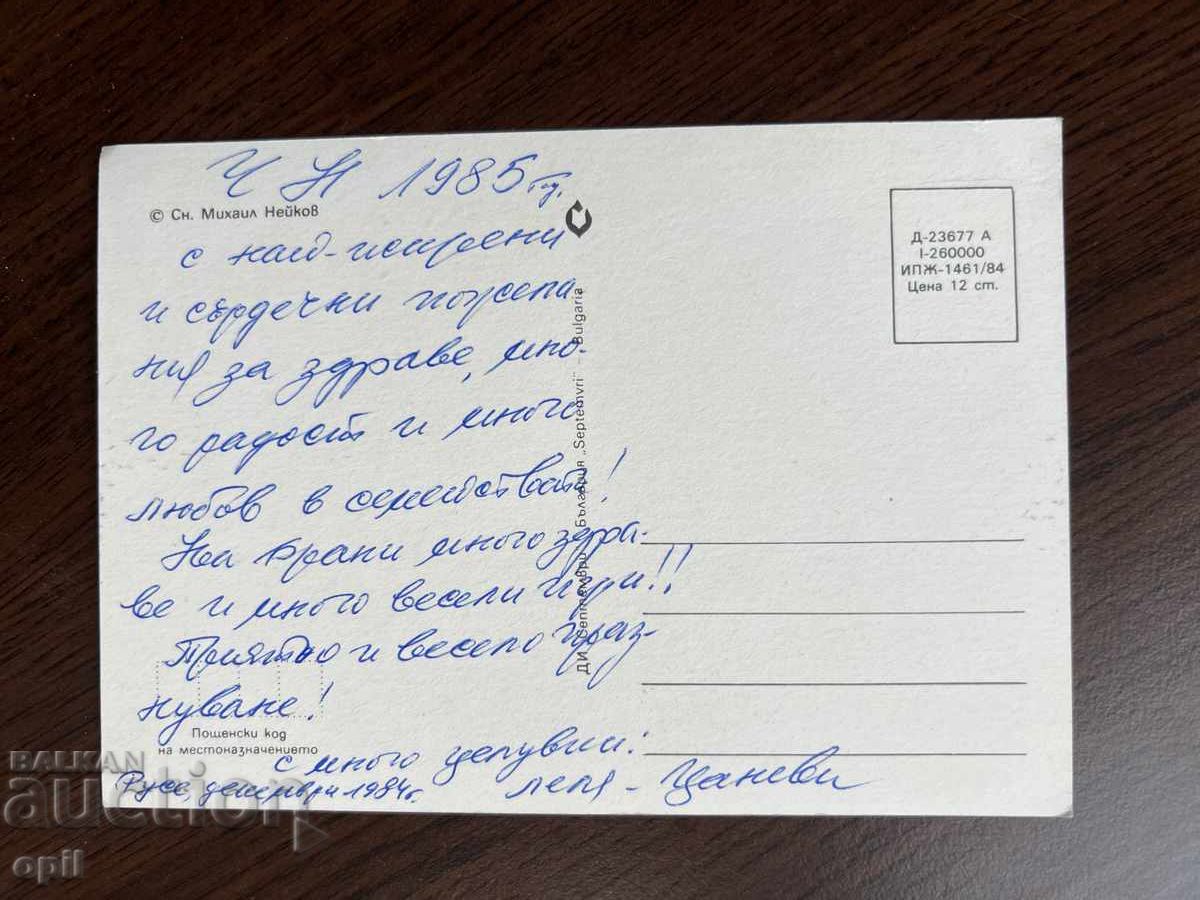 Ч Н 1985 год.
© Сн. Михаил Нейков
с най-искрени
и сърдечни пожела-
ния за здраве, мно-
го радост и много
любов в семейството!
На Крани много здра-
ве и много весели игри!!
Приятно и весело праз-
нуване!
с много целувки:
Леля - Цаневи
Русе, декември 1984 г.
Пощенски код
на местоназначението
ДИ „Септември" България „Septemvri" – Bulgaria
Д-23677 А
I-260000
ИПЖ-1461/84
Цена 12 ст.
BALKAN
auction
opil